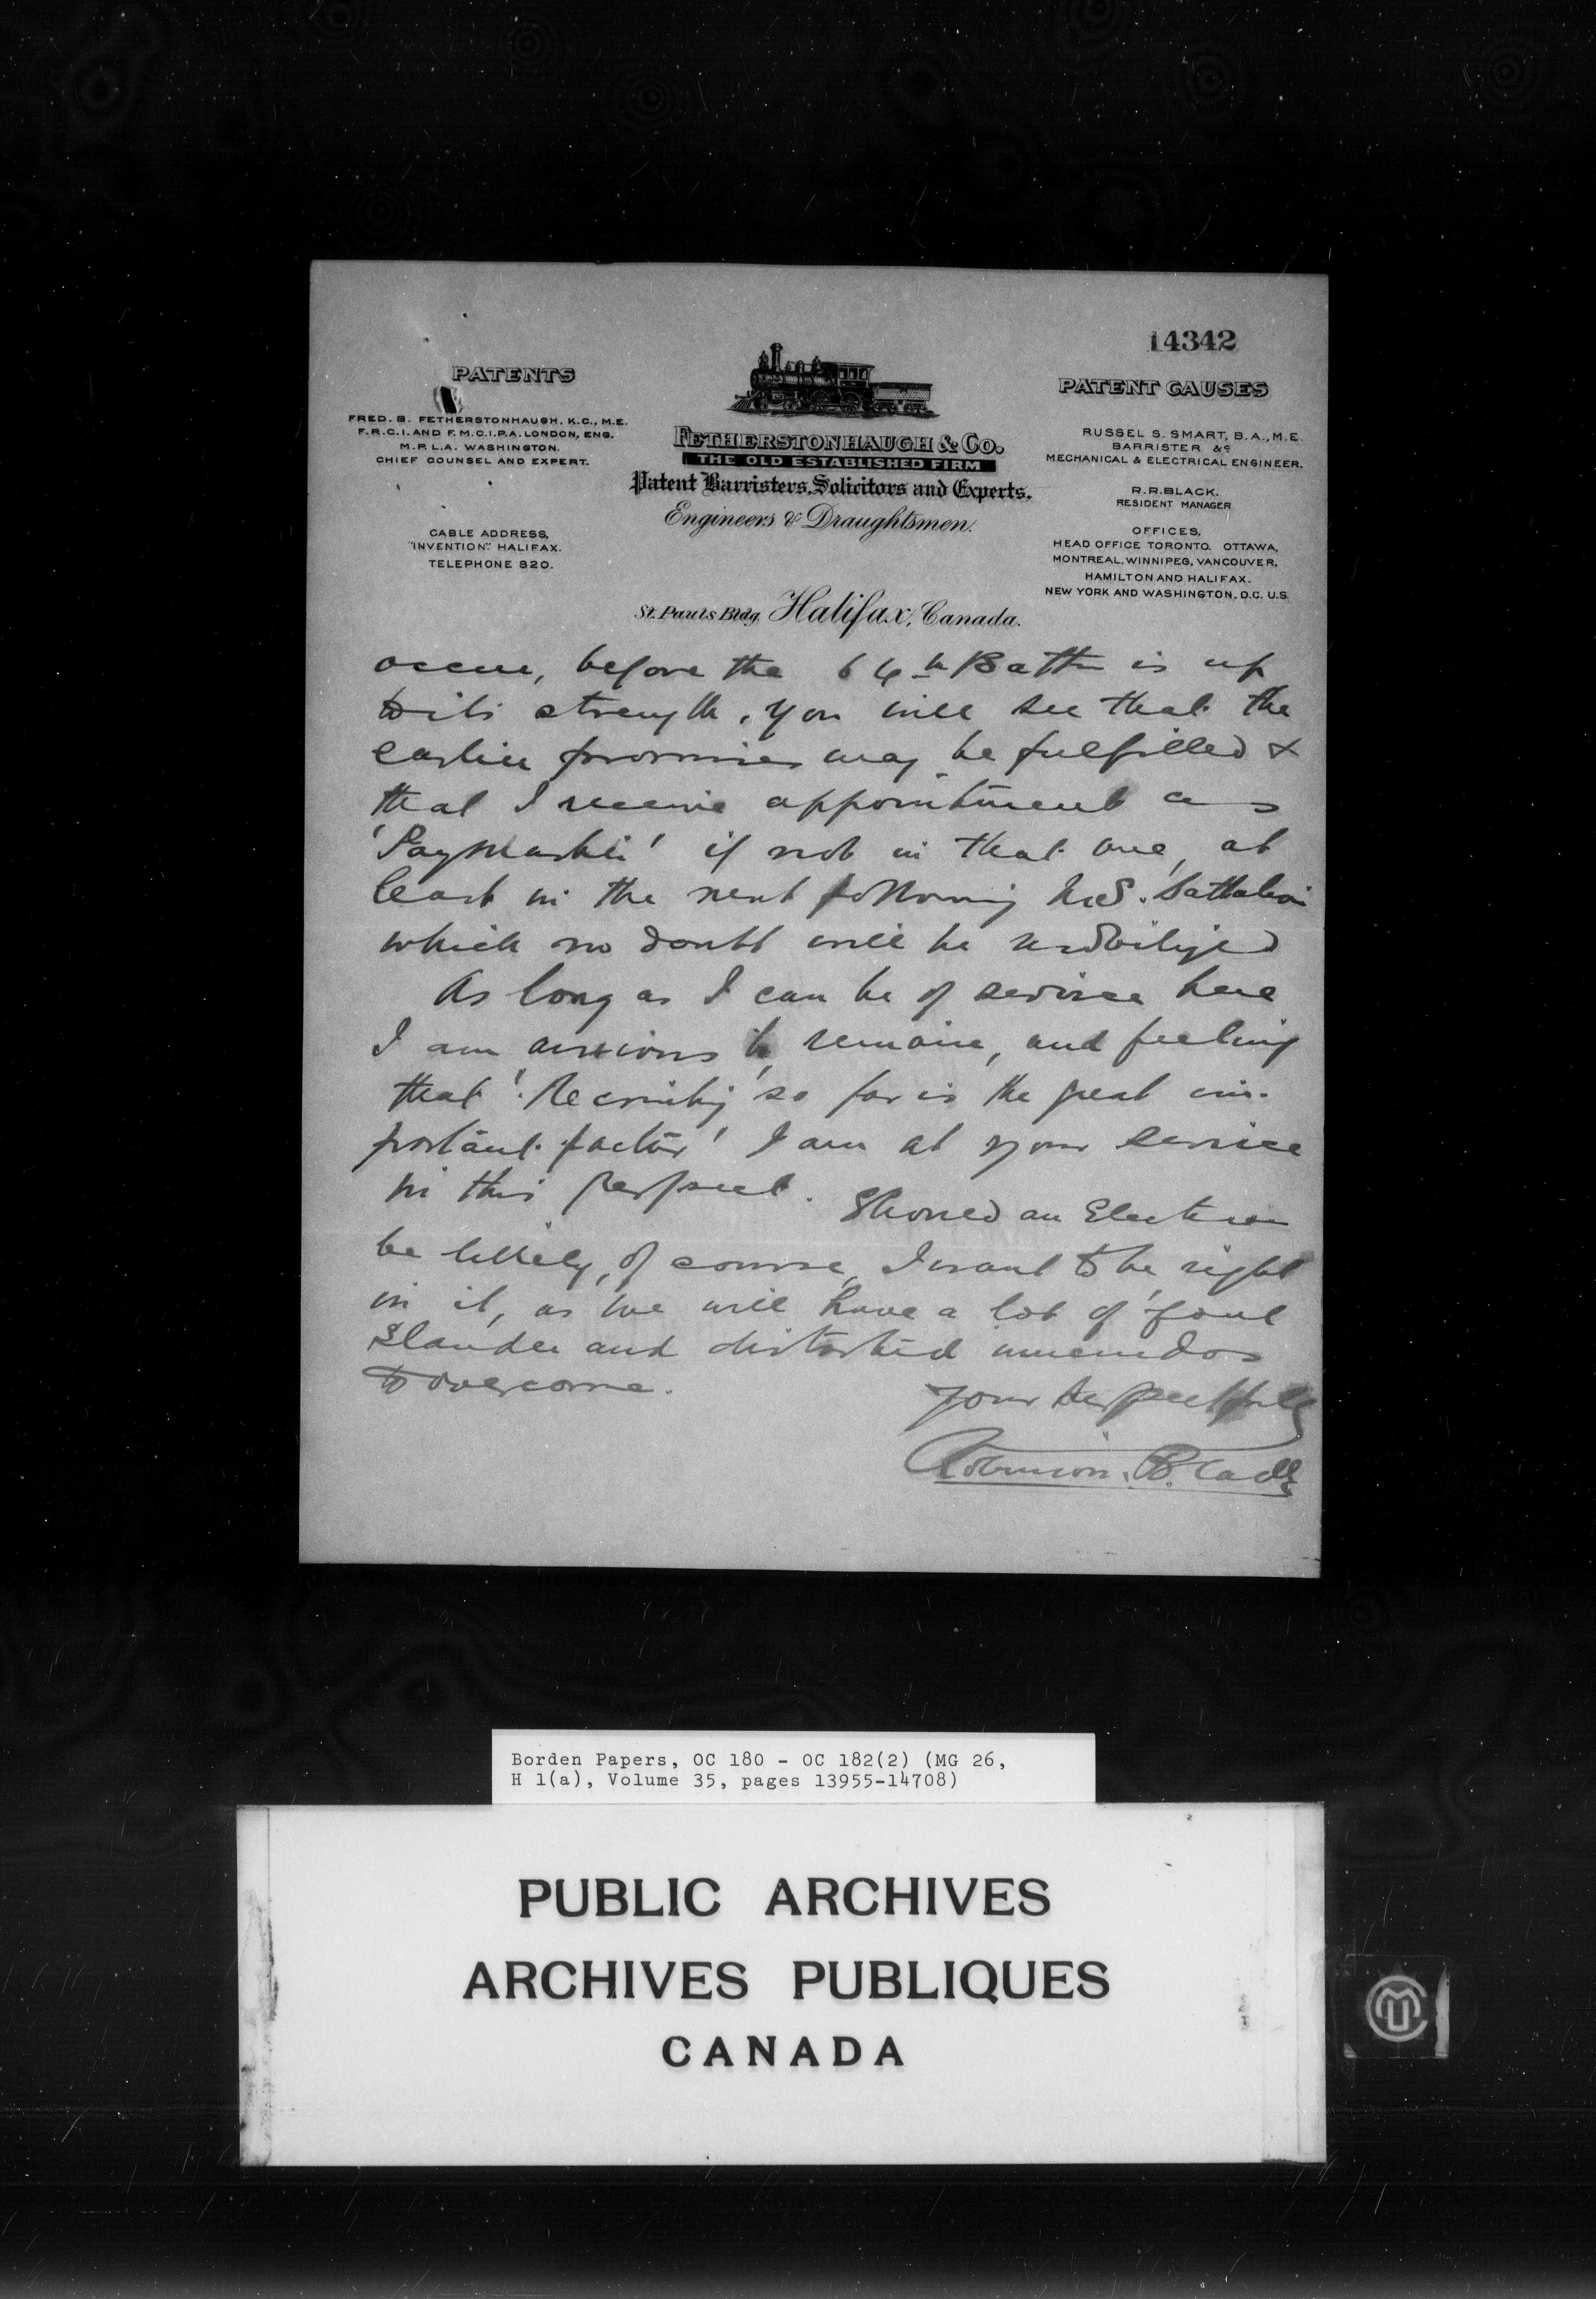 14342
PATENTS
FRED. B. FETHERSTONHAUGH, K.C., M.E.
F.R.C.I. AND F.M.C.I.P.A. LONDON, ENG.
M.P.L.A. WASHINGTON.
CHIEF COUNSEL AND EXPERT.
CABLE ADDRESS,
"INVENTION" HALIFAX.
TELEPHONE 820.
FETHERSTONHAUGH & CO.
THE OLD ESTABLISHED FIRM
Patent Barristers, Solicitors and Experts.
Engineers & Draughtsmen.
PATENT CAUSES
RUSSEL S. SMART, B.A., M.E.
BARRISTER &c
MECHANICAL & ELECTRICAL ENGINEER.
R.R. BLACK.
RESIDENT MANAGER
OFFICES,
HEAD OFFICE TORONTO. OTTAWA,
MONTREAL, WINNIPEG, VANCOUVER,
HAMILTON AND HALIFAX.
NEW YORK AND WASHINGTON, D.C. U.S.
St. Pauls Bldg. Halifax, Canada.
occur, before the 64th Battn is up
to its strength, you will see that the
earlier promises may be fulfilled &
that I receive appointment as
'Paymaster' if not in that one, at
least in the next following N.S. Battalion
which no doubt will be
As long as I can be of service here
I am anxious to remain, and feeling
that 'Recruiting' so far is the great im-
portant factor' I am at your service
in this respect. Should an Election
be likely, of course, I want to be right
in it, as we will have a lot of foul
slander and distorted innuendos
to overcome.
Your Respectfully
Robinson. Black
Borden Papers, OC 180 - OC 182(2) (MG 26,
H 1(a), Volume 35, pages 13955-14708)
PUBLIC ARCHIVES
ARCHIVES PUBLIQUES
CANADA